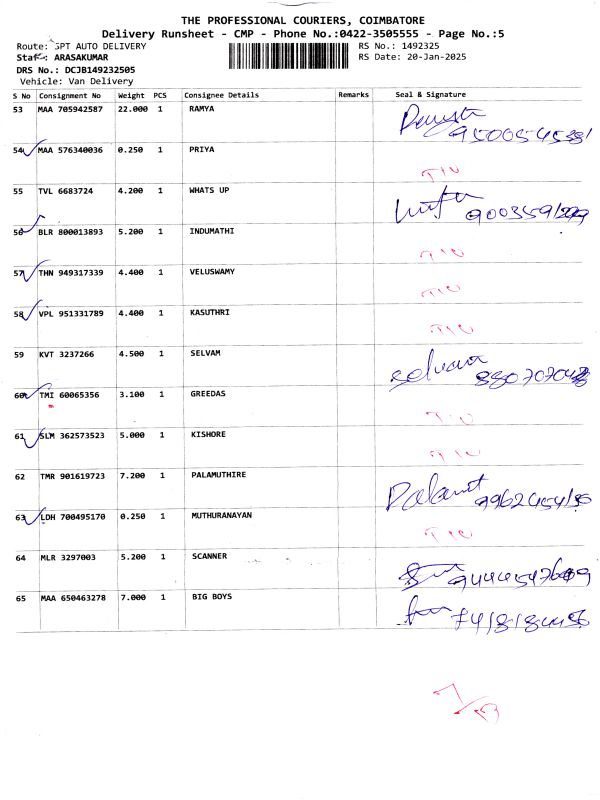 THE PROFESSIONAL COURIERS, COIMBATORE
Delivery Runsheet - CMP - Phone No.:0422-3505555 - Page No.:5
Route: GPT AUTO DELIVERY RS No.: 1492325
Staff: ARASAKUMAR RS Date: 20-Jan-2025
DRS No.: DCJB149232505
Vehicle: Van Delivery
S No Consignment No Weight PCS Consignee Details Remarks Seal & Signature
53 MAA 705942587 22.000 1 RAMYA
54 MAA 576340036 0.250 1 PRIYA
55 TVL 6683724 4.200 1 WHATS UP
56 BLR 800013893 5.200 1 INDUMATHI
57 THN 949317339 4.400 1 VELUSWAMY
58 VPL 951331789 4.400 1 KASUTHRI
59 KVT 3237266 4.500 1 SELVAM selvam
60 TMI 60065356 3.100 1 GREEDAS
61 SLM 362573523 5.000 1 KISHORE
62 TMR 901619723 7.200 1 PALAMUTHIRE
63 LDH 700495170 0.250 1 MUTHURANAYAN
64 MLR 3297003 5.200 1 SCANNER
65 MAA 650463278 7.000 1 BIG BOYS